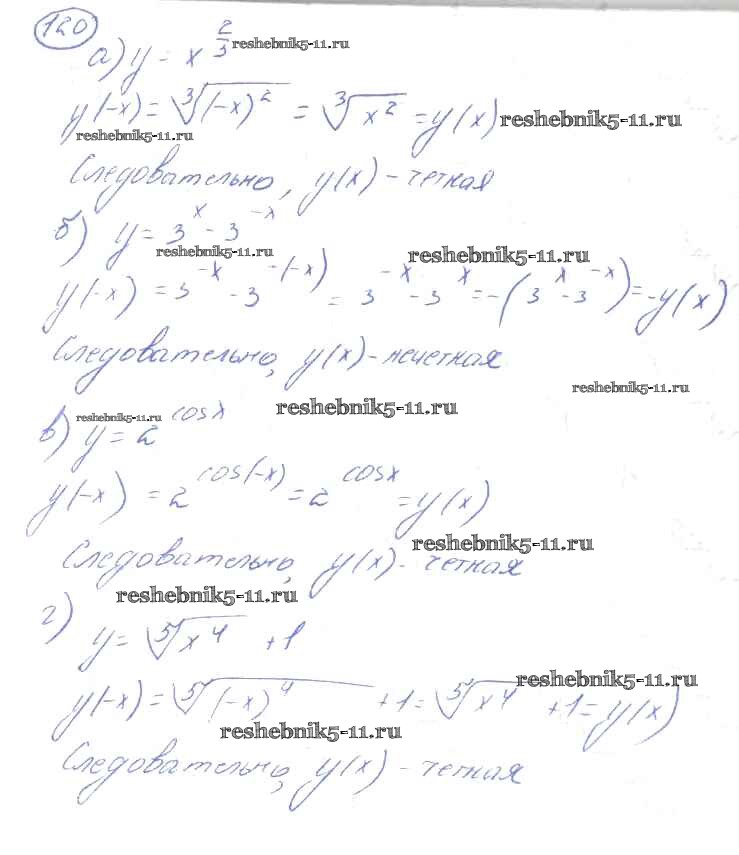 120
а) y = x^(2/3) reshebnik5-11.ru
y(-x) = ∛(-x)² = ∛x² = y(x) reshebnik5-11.ru
reshebnik5-11.ru
Следовательно, y(x) - четная
б) y = 3^x - 3^(-x)
reshebnik5-11.ru reshebnik5-11.ru
y(-x) = 3^(-x) - 3^(-(-x)) = 3^(-x) - 3^x = -(3^x - 3^(-x)) = -y(x)
Следовательно, y(x) - нечетная
reshebnik5-11.ru
reshebnik5-11.ru reshebnik5-11.ru
в) y = 2^(cosx)
y(-x) = 2^(cos(-x)) = 2^(cosx) = y(x)
reshebnik5-11.ru
Следовательно, y(x) - четная
reshebnik5-11.ru
г) y = ⁵√x⁴ + 1
reshebnik5-11.ru
y(-x) = ⁵√(-x)⁴ + 1 = ⁵√x⁴ + 1 = y(x)
reshebnik5-11.ru
Следовательно, y(x) - четная